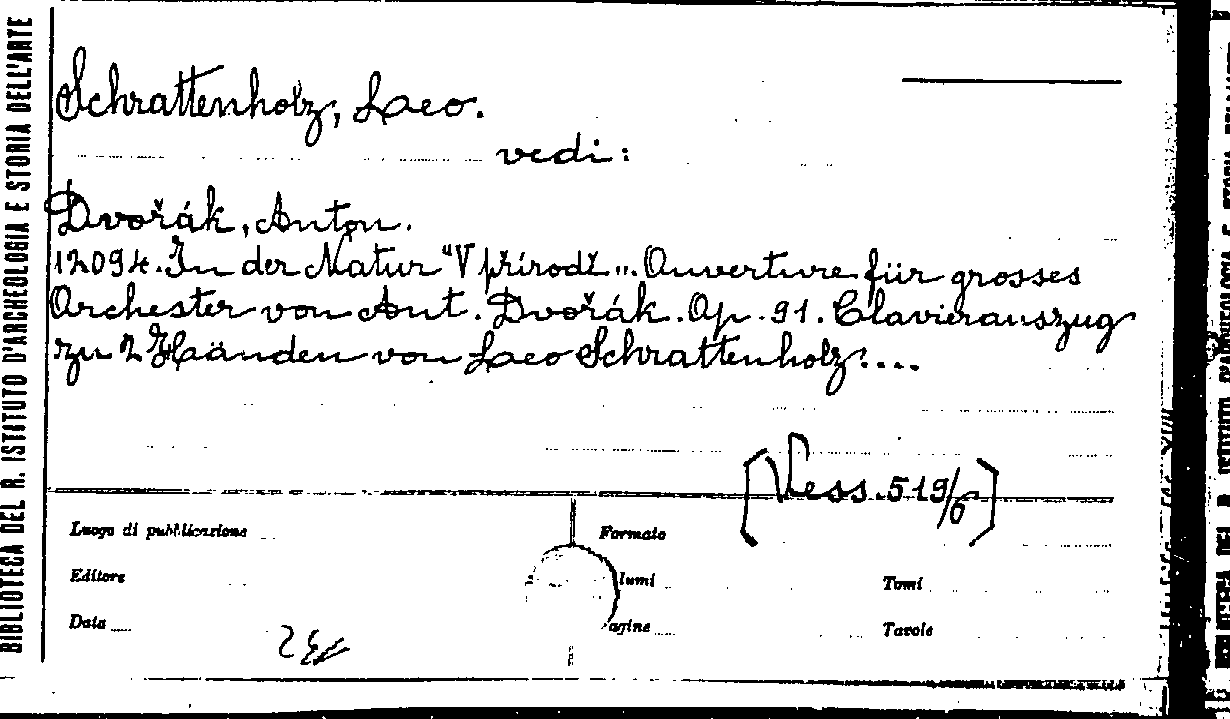 BIBLIOTECA DEL R. ISTITUTO D'ARCHEOLOGIA E STORIA DELL'ARTE
Schrattenholz, Leo.
vedi:
Dvořák, Anton.
12094. In der Natur "V přírodě". Ouverture für grosses
Orchester von Ant. Dvořák. Op. 91. Clavierauszug
zu 2 Händen von Leo Schrattenholz....
[Vess. 519/6]
Luogo di pubblicazione
Formato
Editore
lumi
Tomi
Data
agine
Tavole